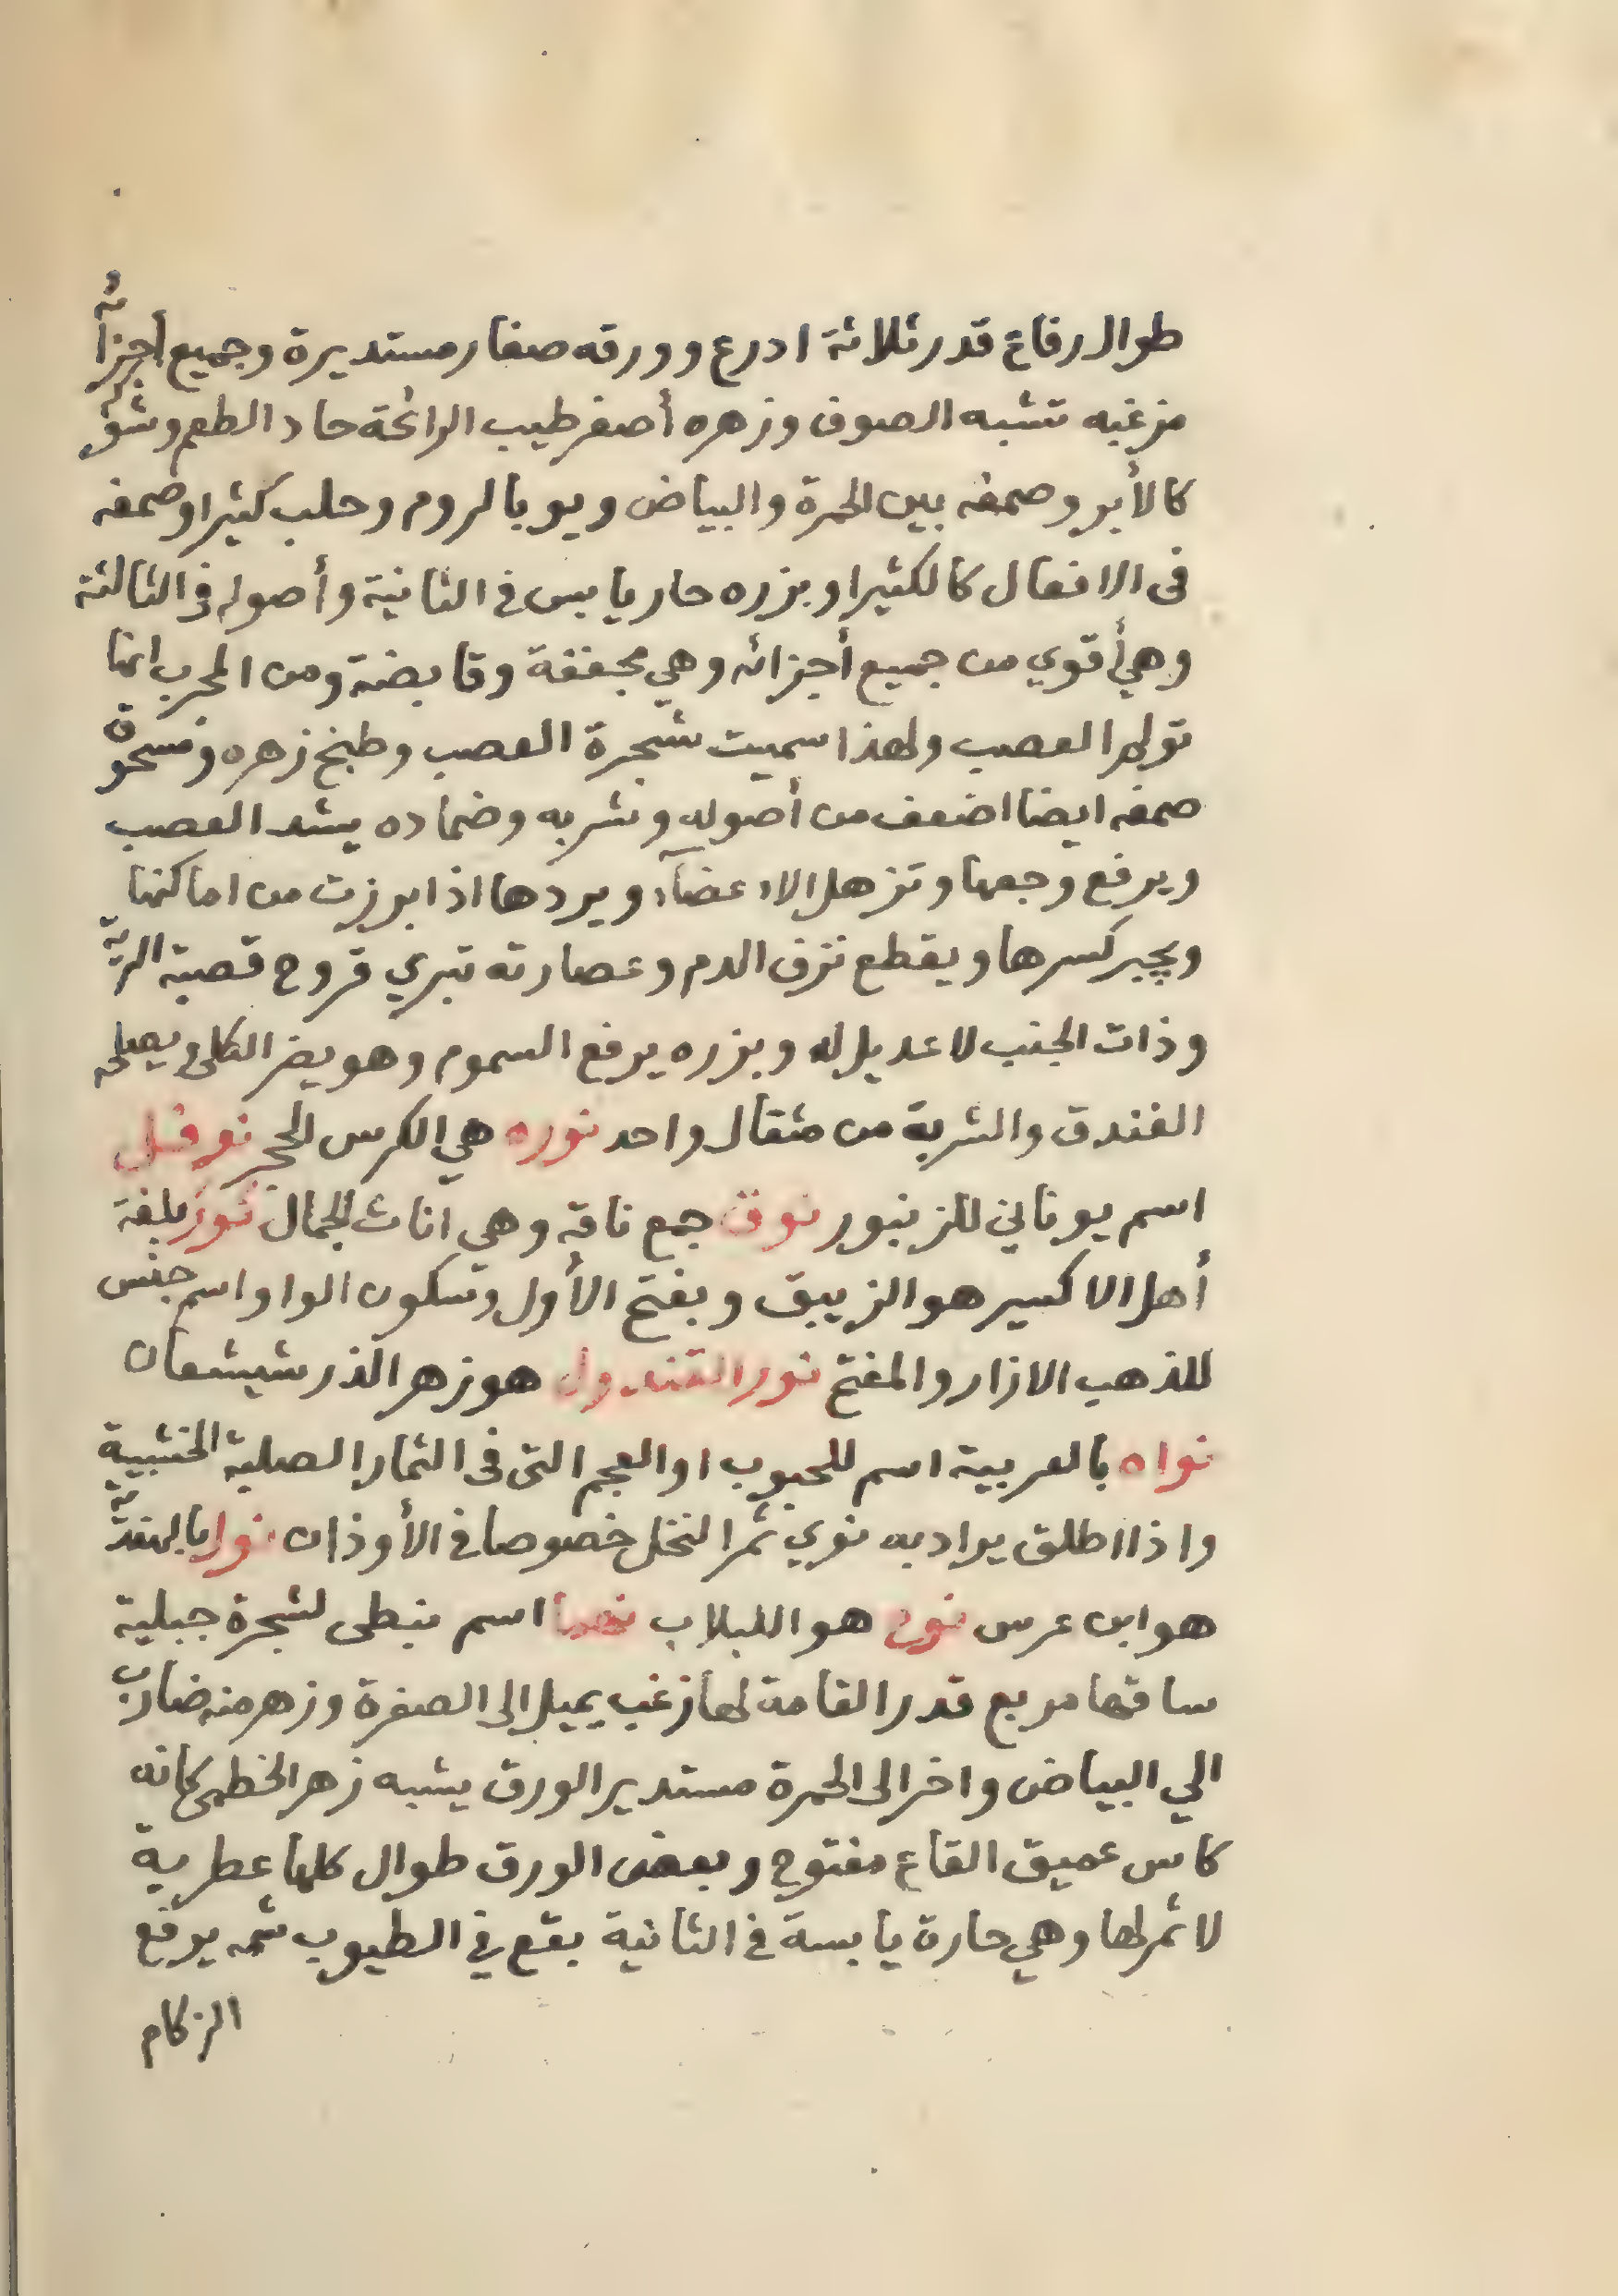 طوال رقاع قدر ثلاثة ادرع وورقه صغار مستديرة وجميع أجزائه
مزغبه تشبه الصوف وزهره أصفر طيب الرائحة حاد الطعم وشوكه
كالأبر وصمغه بين الحمرة والبياض ويو بالروم وحلب كثيرا وصمغه
فى الافعال كالكثيرا وبزره حار يابس في الثانية وأصوله في الثالثة
وهي أقوي من جميع أجزائه وهي مجففة وقابضة ومن المجرب انها
تولد العصب ولهذا سميت شجرة العصب وطبخ زهره ومسحوق
صمغه ايضا اضعف من أصوله وشربه وضماده يشد العصب
ويرفع وجعها وتزهل الاعضآء ويردها اذا برزت من اماكنها
ويجبر كسرها ويقطع نزف الدم وعصارته تبري قروح قصبة الرية
وذات الجنب لا عديل له وبزره يرفع السموم وهو يضر الكلى ويصلحه
الفندق والشربة من مثقال واحد نوره هي الكرس الحجر نوفل
اسم يوناني للزنبور نوق جمع ناقه وهي اناث الجمال نور بلغة
أهل الاكسير هو الزيبق وبفتح الأول وسكون الواو اسم جنس
للذهب الازار والمفتح نور القندول هو زهر الذرشيشعان
نواه بالعربية اسم للحبوب او العجم التى فى الثمار الصلبة الخشبية
واذا اطلق يراد به نوي ثمر النخل خصوصا في الأوذان نوار بالهندية
هو ابن عرس نوح هو اللبلاب نهما اسم نبطى لشجرة جبلية
ساقها مربع قدر القامة لها زغب يميل الى الصفرة وزهر منه ضارب
الي البياض واخر الى الحمرة مستدير الورق يشبه زهر الخطمى كانه
كاس عميق القاع مفتوح وبعض الورق طوال كلها عطرية
لا ثمر لها وهي حارة يابسة في الثانية يقع في الطيوب شمه يرفع
الزكام